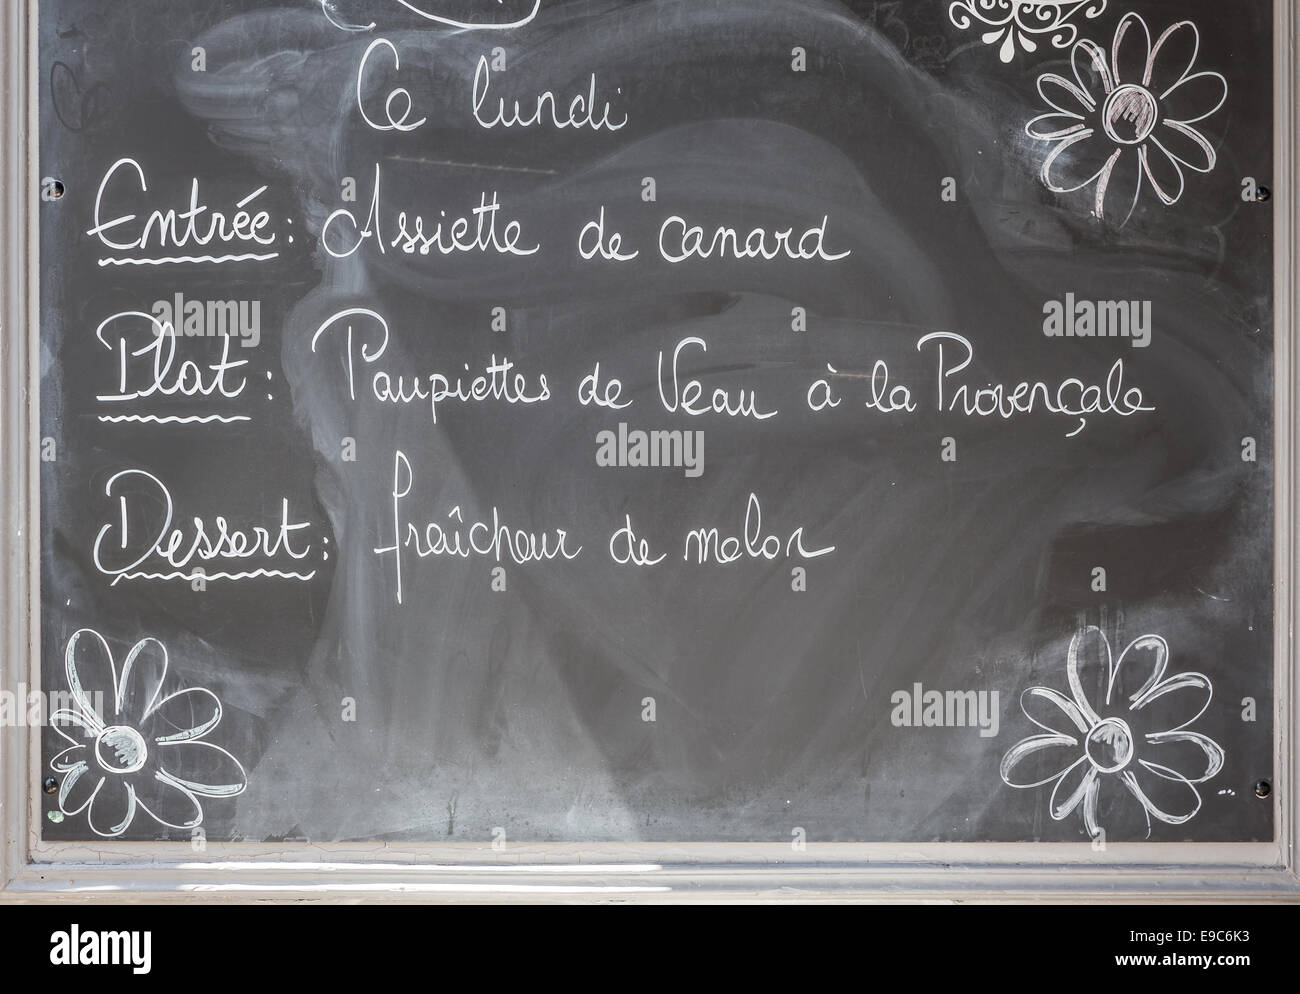 Ce lundi
Entrée : Assiette de canard
Plat : Paupiettes de Veau à la Provençale
Dessert : fraîcheur de melon
alamy
alamy
Image ID: E9C6K3
www.alamy.com